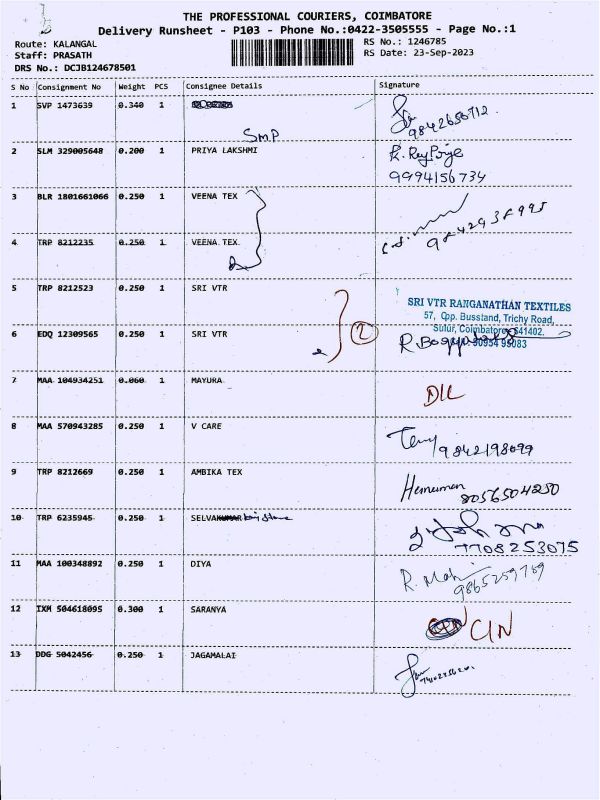 THE PROFESSIONAL COURIERS, COIMBATORE
Delivery Runsheet - P103 - Phone No.:0422-3505555 - Page No.:1
Route: KALANGAL
RS No.: 1246785
Staff: PRASATH
RS Date: 23-Sep-2023
DRS No.: DCJB124678501
S No Consignment No Weight PCS Consignee Details Signature
1 SVP 1473639 0.340 1
SMP
2 SLM 329005648 0.200 1 PRIYA LAKSHMI
9994156734
3 BLR 1801661066 0.250 1 VEENA TEX
4 TRP 8212235 0.250 1 VEENA TEX
5 TRP 8212523 0.250 1 SRI VTR
SRI VTR RANGANATHAN TEXTILES
57, Opp. Busstand, Trichy Road,
Sulur, Coimbatore 641402.
6 EDQ 12309565 0.250 1 SRI VTR
2
7 MAA 104934251 0.060 1 MAYURA
DIL
8 MAA 570943285 0.250 1 V CARE
9842198099
9 TRP 8212669 0.250 1 AMBIKA TEX
8056504250
10 TRP 6235945 0.250 1 SELVA
7708253075
11 MAA 100348892 0.250 1 DIYA
9865259769
12 IXM 504618095 0.300 1 SARANYA
CIN
13 DDG 5042456 0.250 1 JAGAMALAI